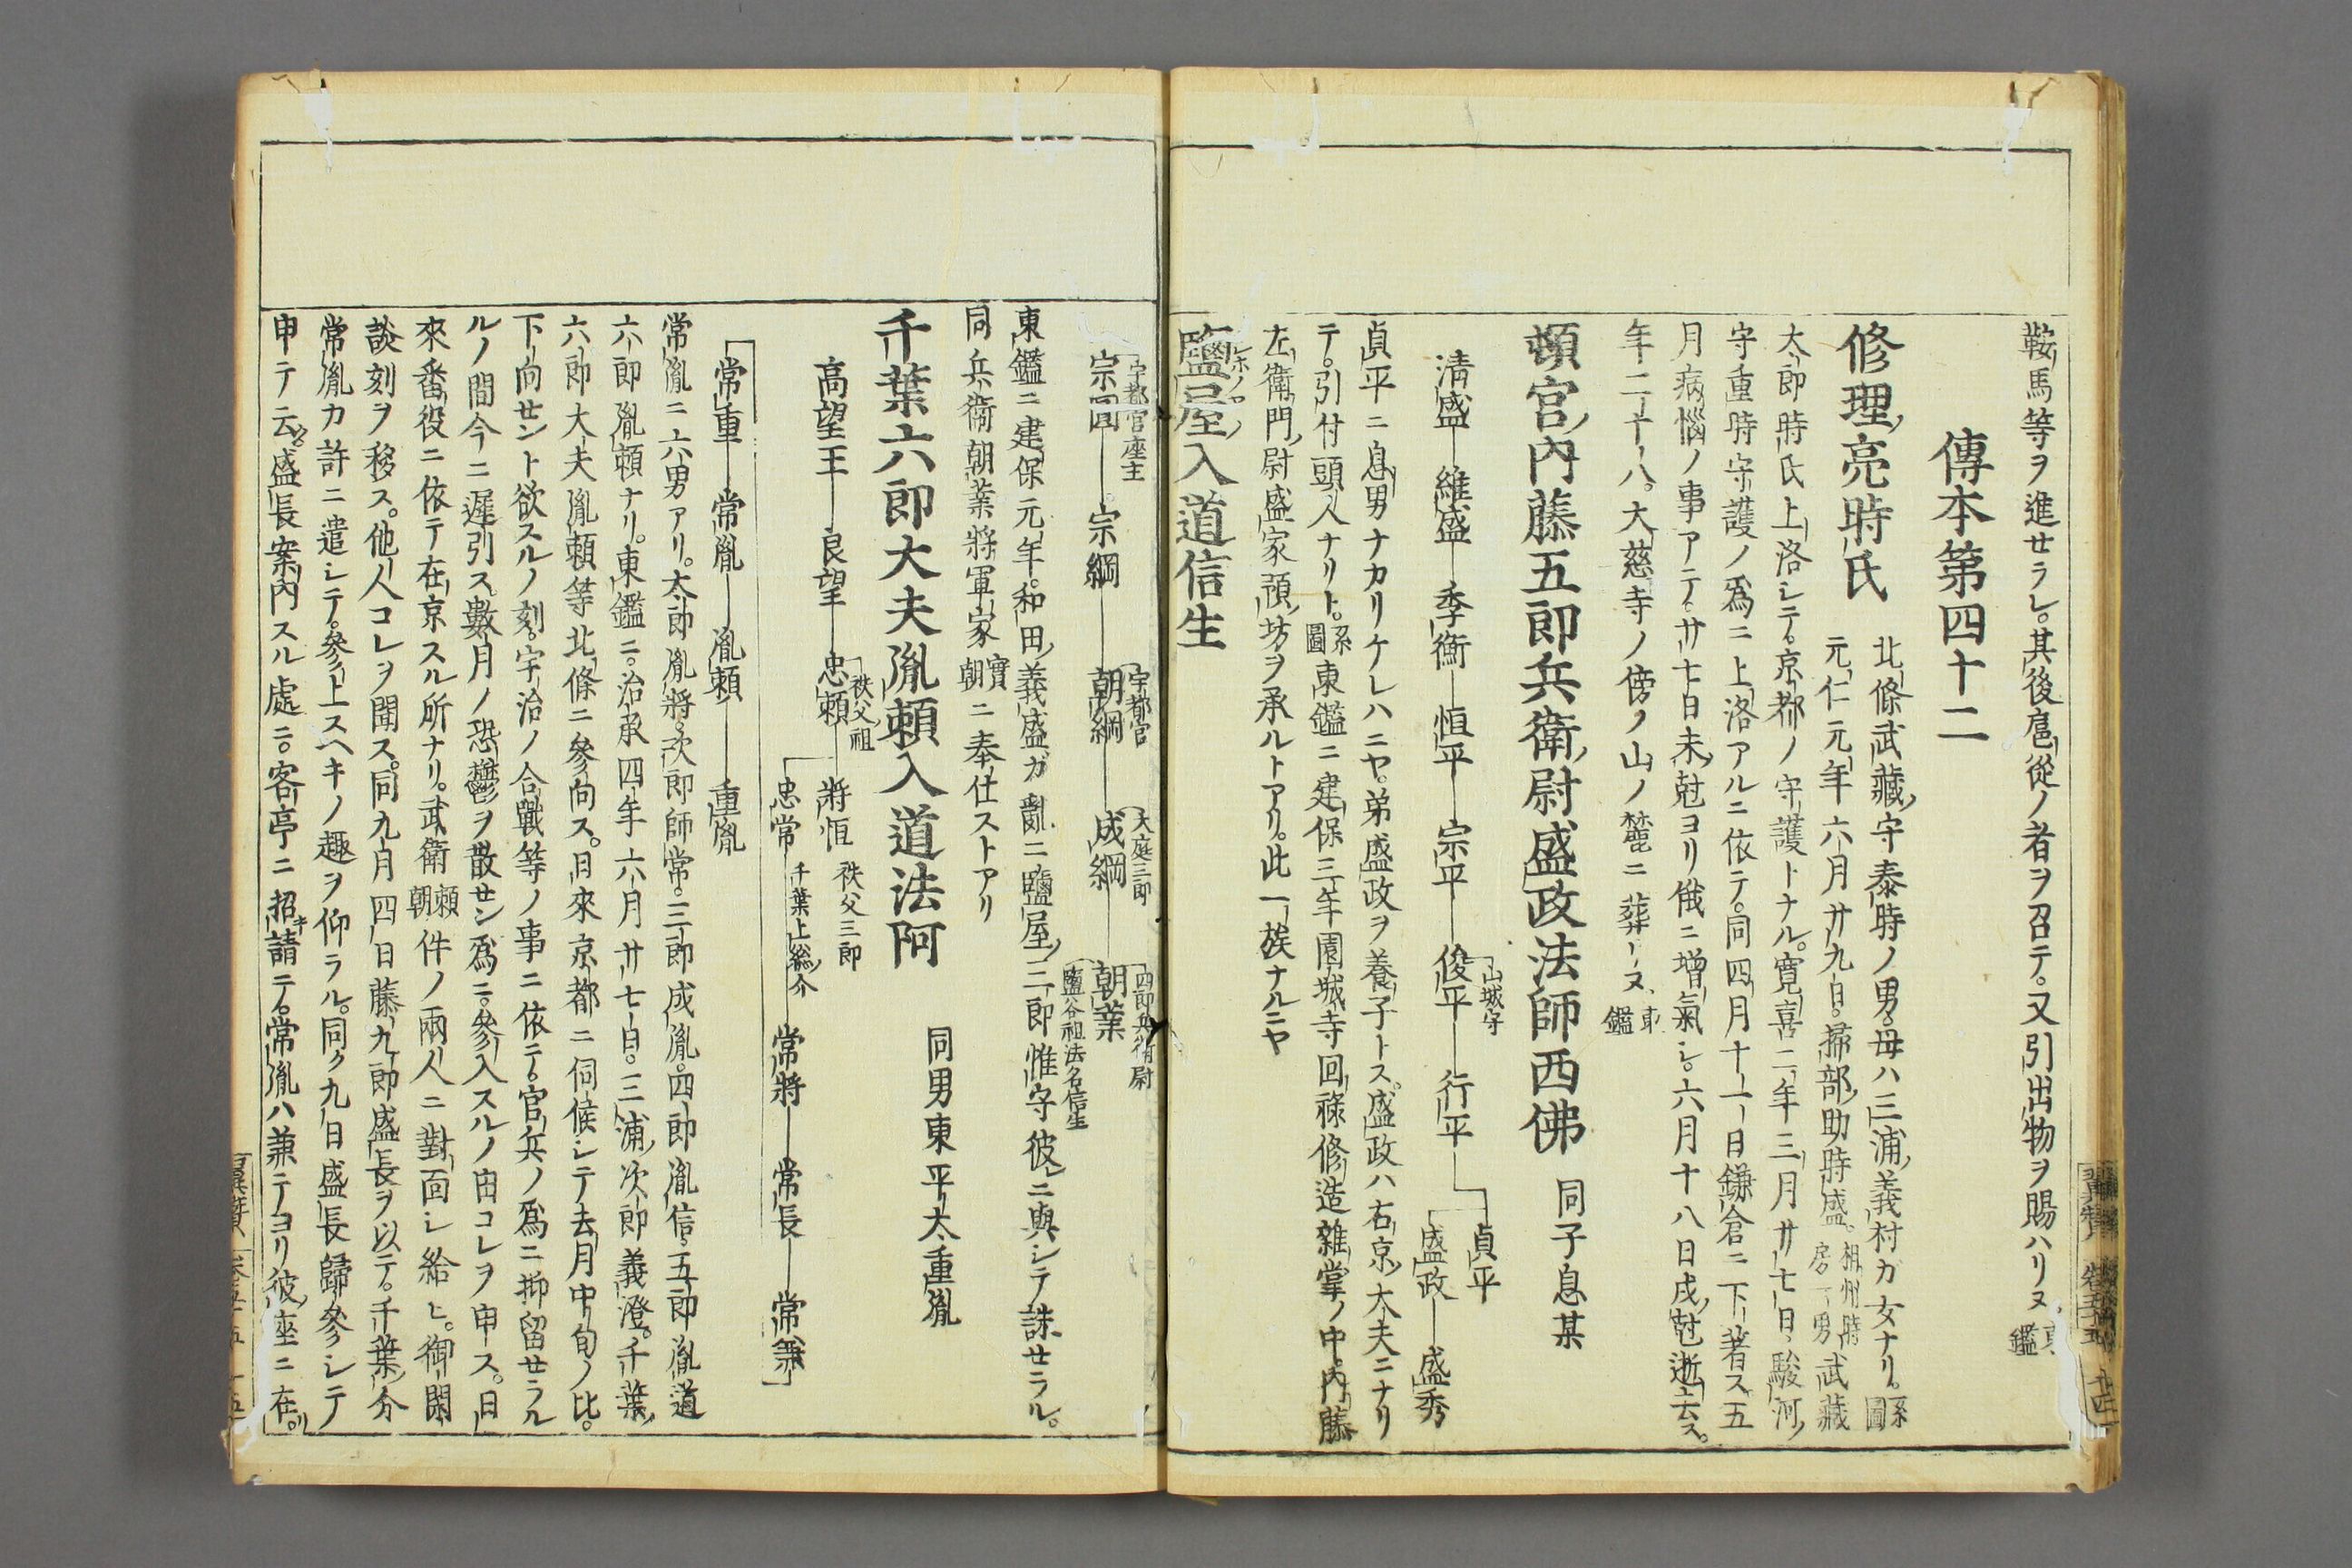 鞍馬等ヲ進セラレ。其後扈從ノ者ヲ召テ。又引出物ヲ賜ハリヌ 東鑑
傳本第四十二
修理亮時氏 北條武藏守泰時ノ男。母ハ三浦義村カ女ナリ。系圖
元仁元年六月廿九日。掃部助時盛。相州時房一男 武藏
太郎時氏上洛シテ。京都ノ守護トナル。寛喜二年三月廿七日、駿河
守重時守護ノ爲ニ上洛アルニ依テ。同四月十一日鎌倉ニ下著ス五
月病惱ノ事アテ。廿七日未尅ヨリ俄ニ增氣シ。六月十八日戌尅逝去ス。
年二十八。大慈寺ノ傍ノ山ノ麓ニ葬リヌ 東鑑
頓宮內藤五郎兵衛尉盛政法師西佛 同子息某
淸盛 維盛 季衡 恒平 宗平 俊平 山城守 行平 貞平
盛政 盛秀
貞平ニ息男ナカリケレハニヤ。弟盛政ヲ養子トス。盛政ハ右京大夫ニナリ
テ。引付頭人ナリト。系圖 東鑑ニ建保三年園城寺回祿修造雜掌ノ中。內藤
左衛門尉盛家預坊ヲ承ルトアリ。此一族ナルニヤ
鹽屋入道信生 シホノ
宇都宮座主 宗圓 宗綱 宇都宮 朝綱 大庭三郎 成綱 四郎兵衛尉 朝業 鹽谷祖法名信生
東鑑ニ建保元年。和田義盛ガ亂ニ鹽屋三郎惟守彼ニ與シテ誅セラル。
同兵衛朝業將軍家 實朝 ニ奉仕ストアリ
千葉六郎大夫胤賴入道法阿 同男東平太重胤
高望王 良望 忠賴 秩父祖 將恒 秩父三郎
忠常 千葉上總介 常將 常長 常兼
常重 常胤 胤賴 重胤
常胤ニ六男アリ。太郎胤將。次郎師常。三郎成胤。四郎胤信。五郎胤道
六郎胤賴ナリ。東鑑ニ。治承四年六月廿七日。三浦次郎義澄。千葉
六郎大夫胤賴等北條ニ參向ス。日來京都ニ伺候シテ去月中旬ノ比。
下向セント欲スルノ刻。宇治ノ合戰等ノ事ニ依テ。官兵ノ爲ニ抑留セラル
ルノ間今ニ遲引ス。數月ノ恐鬱ヲ散セン爲ニ。參入スルノ由コレヲ申ス。日
來番役ニ依テ在京スル所ナリ。武衛 賴朝 件ノ兩人ニ對面シ給ヒ。御閑
談刻ヲ移ス。他人コレヲ聞ス。同九月四日藤九郎盛長ヲ以テ。千葉介
常胤カ許ニ遣シテ。參上スヘキノ趣ヲ仰ラル。同ク九日盛長歸參シテ
申テ云。盛長案內スル處ニ。客亭ニ招請テ。常胤ハ兼テヨリ彼座ニ在。